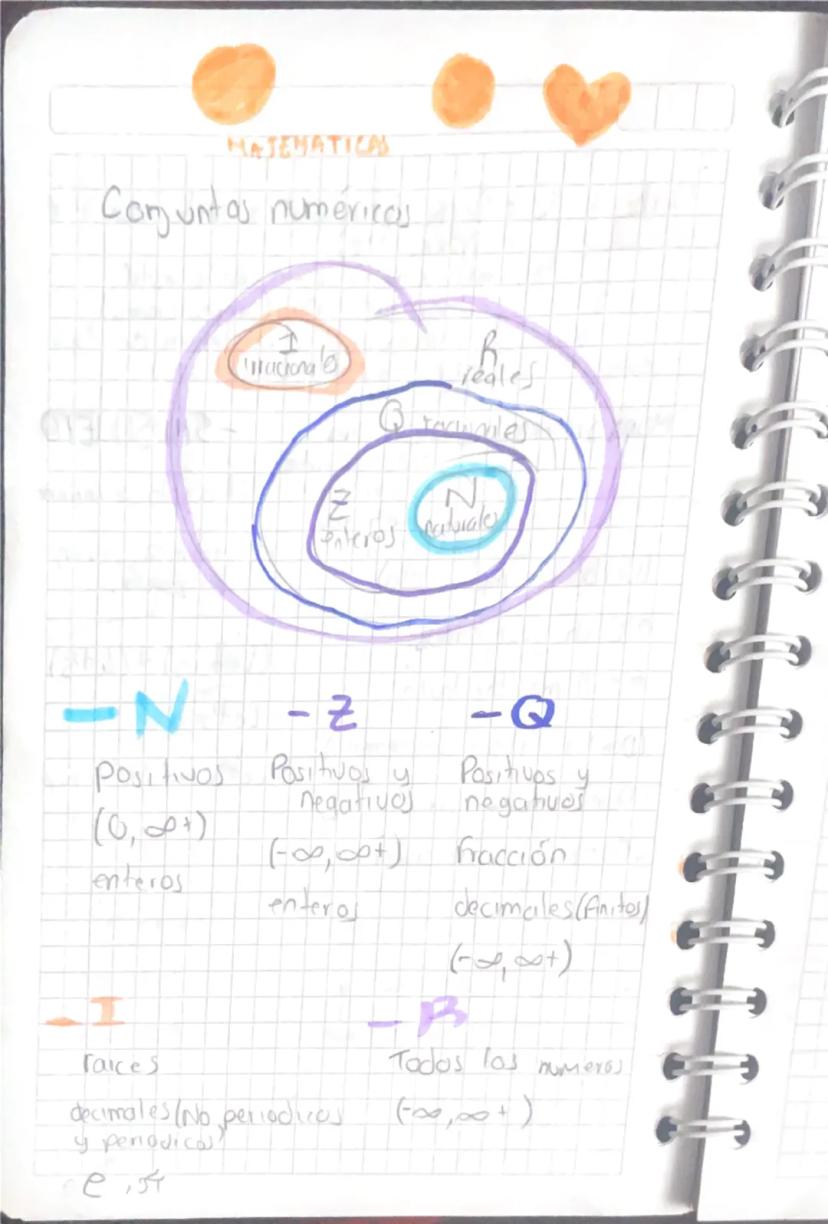 MATEMATICAS
Conjuntos numéricos
I
irracionales
R
reales
Q racionales
Z
enteros
N
naturales
- N
Positivos
(0, ∞+)
enteros
- Z
Positivos y
negativos
(-∞, ∞+)
enteros
- Q
Positivos y
negativos
fracción
decimales (finitos)
(-∞, ∞+)
- I
raices
decimales (No periodicos
y periodicos)
e, π
- R
Todos los numeros
(-∞, ∞+)